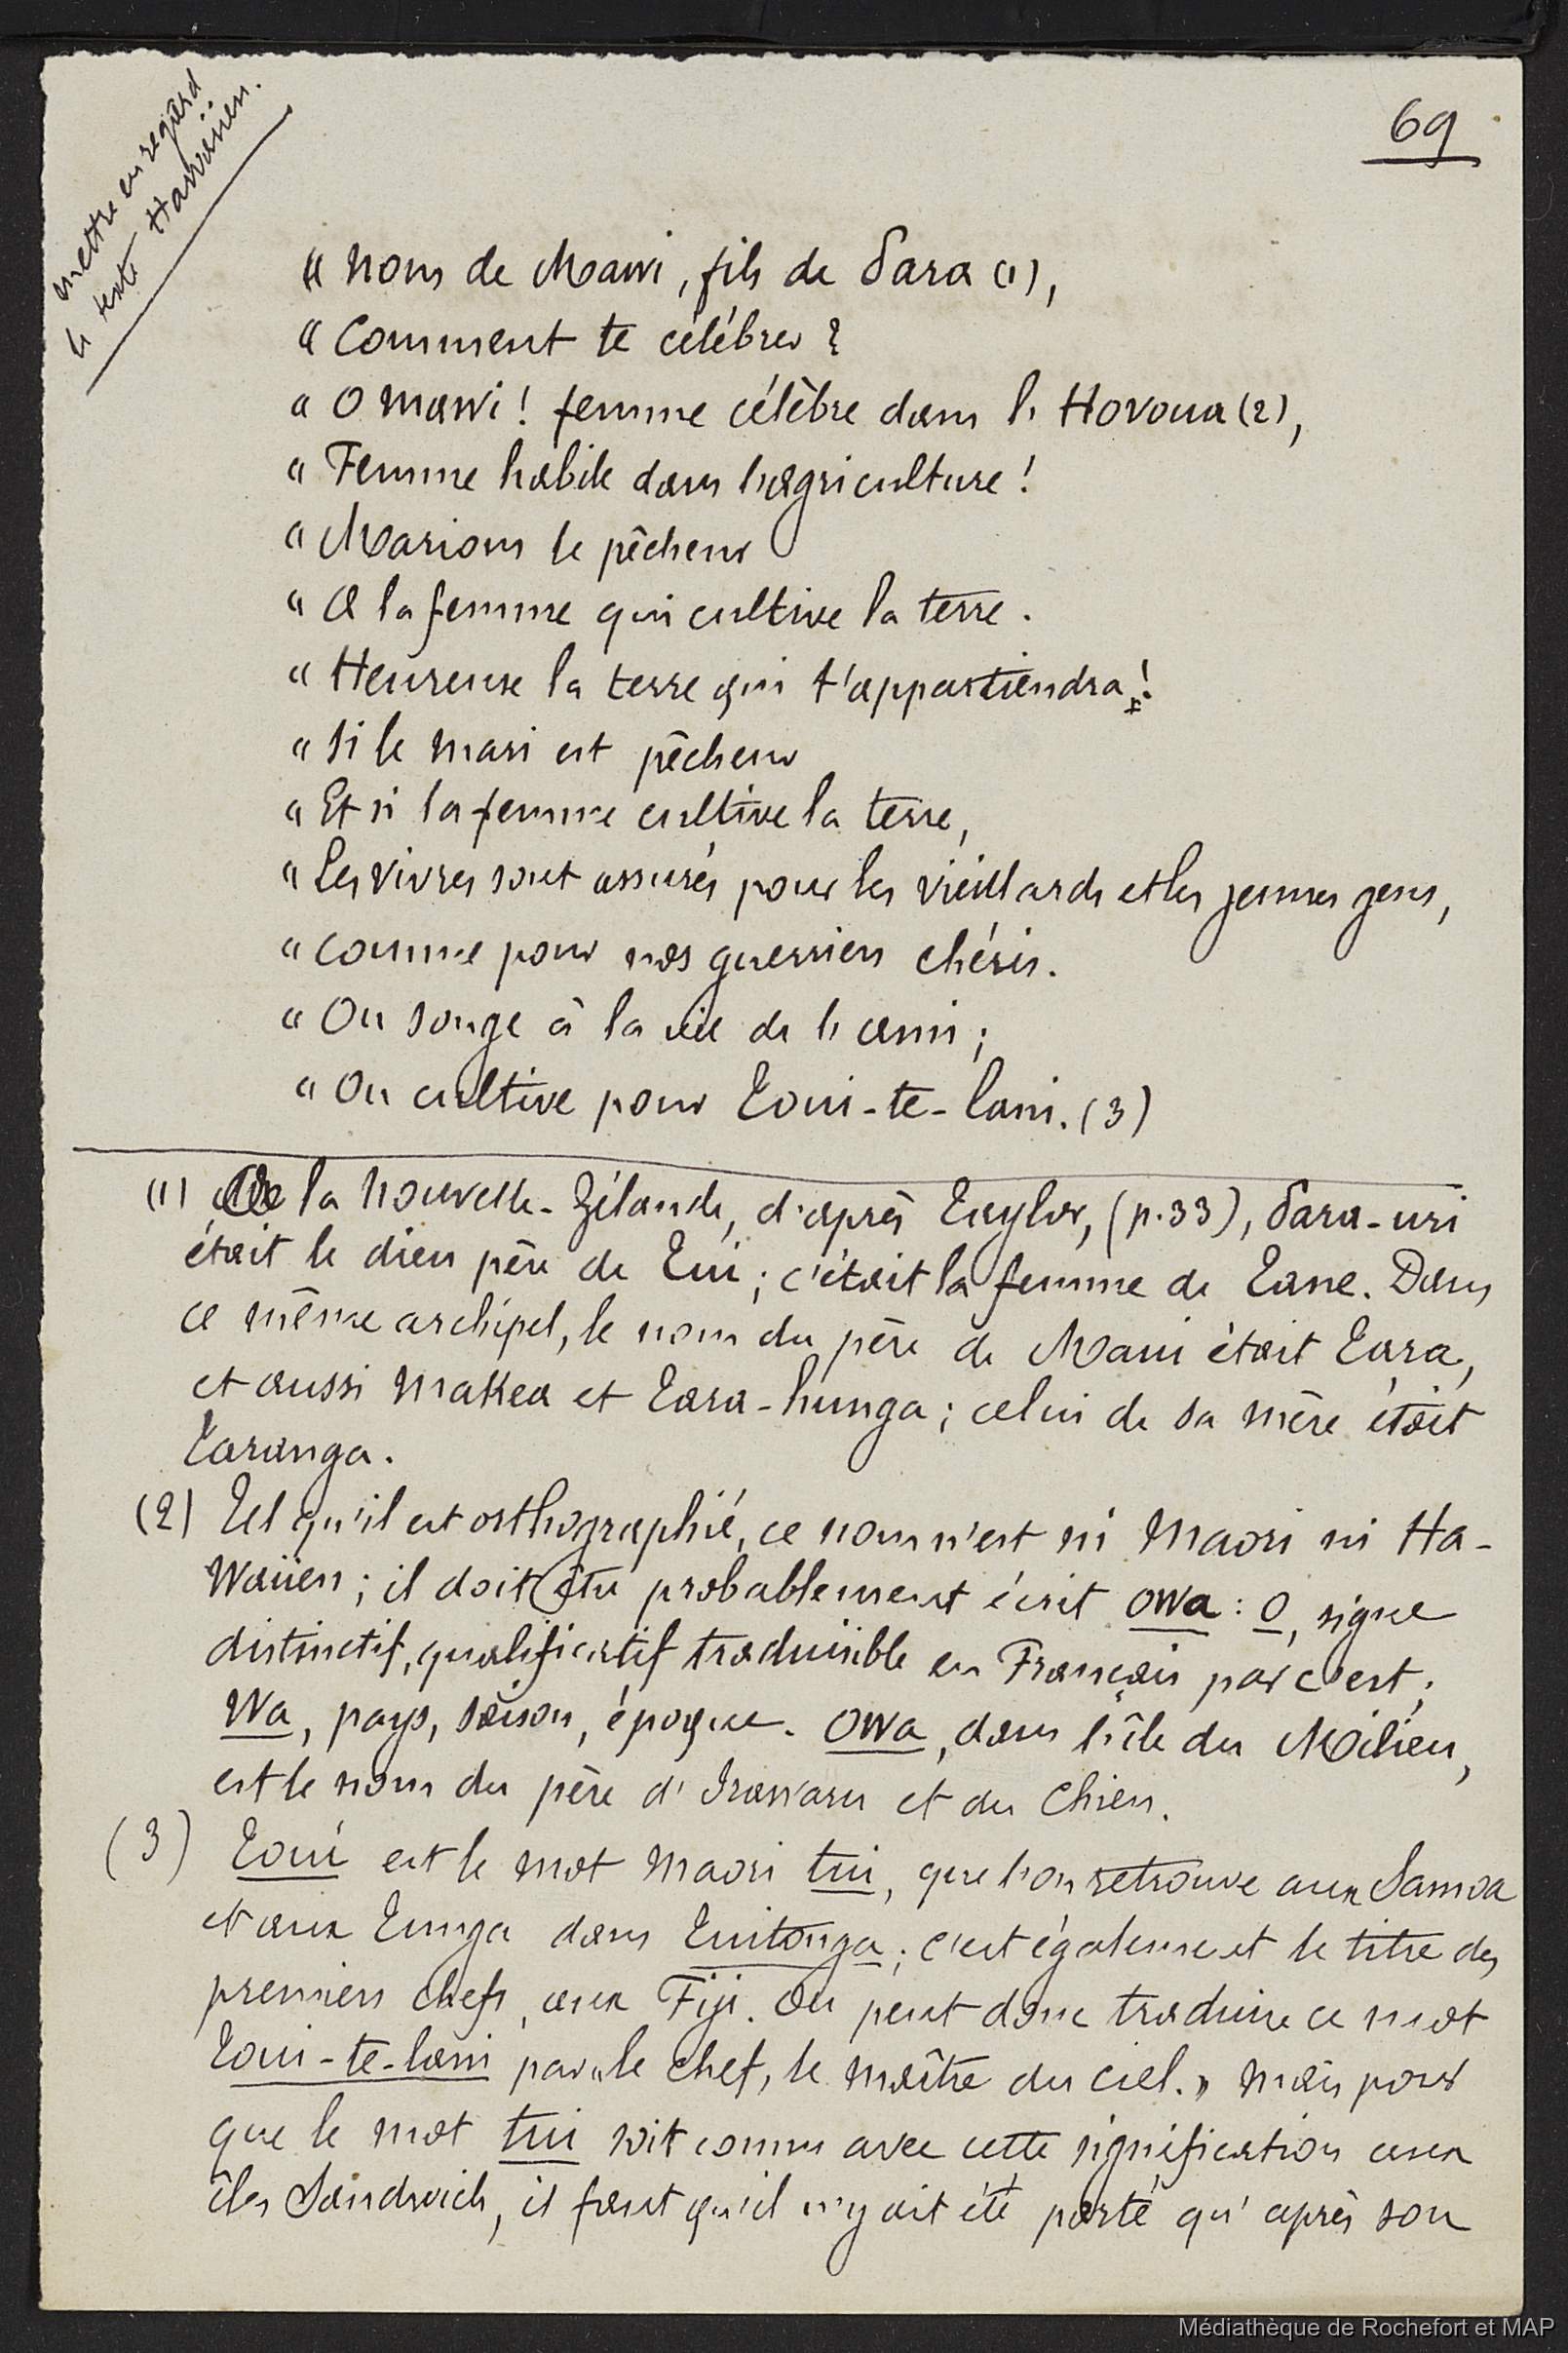 mettre en regard
le texte Hawaiien.
69
« Nom de Mawi, fils de Tara (1),
« Comment te célébrer ?
« O Mawi ! femme célèbre dans l' Hovoua (2),
« Femme habile dans l'agriculture !
« Marions le pêcheur
« A la femme qui cultive la terre.
« Heureuse la terre qui t'appartiendra !
« Si le mari est pêcheur
« Et si la femme cultive la terre,
« Les vivres sont assurés pour les vieillards et les jeunes gens,
« Comme pour nos guerriers chéris.
« On songe à la vie de l'ami ;
« On cultive pour Toui-te-lani. (3)
(1) A la Nouvelle-Zélande, d'après Taylor, (p.33), Tara-uri
était le dieu père de Tui ; c'était la femme de Tane. Dans
ce même archipel, le nom du père de Maui était Tara,
et aussi Makea et Tara-hunga ; celui de sa mère était
Taranga.
(2) Tel qu'il est orthographié, ce nom n'est ni Maori ni Ha-
waiien ; il doit être probablement écrit owa : o, signe
distinctif, qualificatif traduisible en Français par c'est ;
Wa, pays, saison, époque. Owa, dans l'île du Milieu,
est le nom du père d'Irawaru et du Chien.
(3) Toui est le mot Maori tui, que l'on retrouve aux Samoa
et aux Tunga dans Tuitonga ; c'est également le titre des
premiers chefs, aux Fiji. On peut donc traduire ce mot
Toui-te-lani par « le chef, le maître du ciel. » Mais pour
que le mot tui soit connu avec cette signification aux
îles Sandwich, il faut qu'il n'y ait été porté qu'après son
Médiathèque de Rochefort et MAP